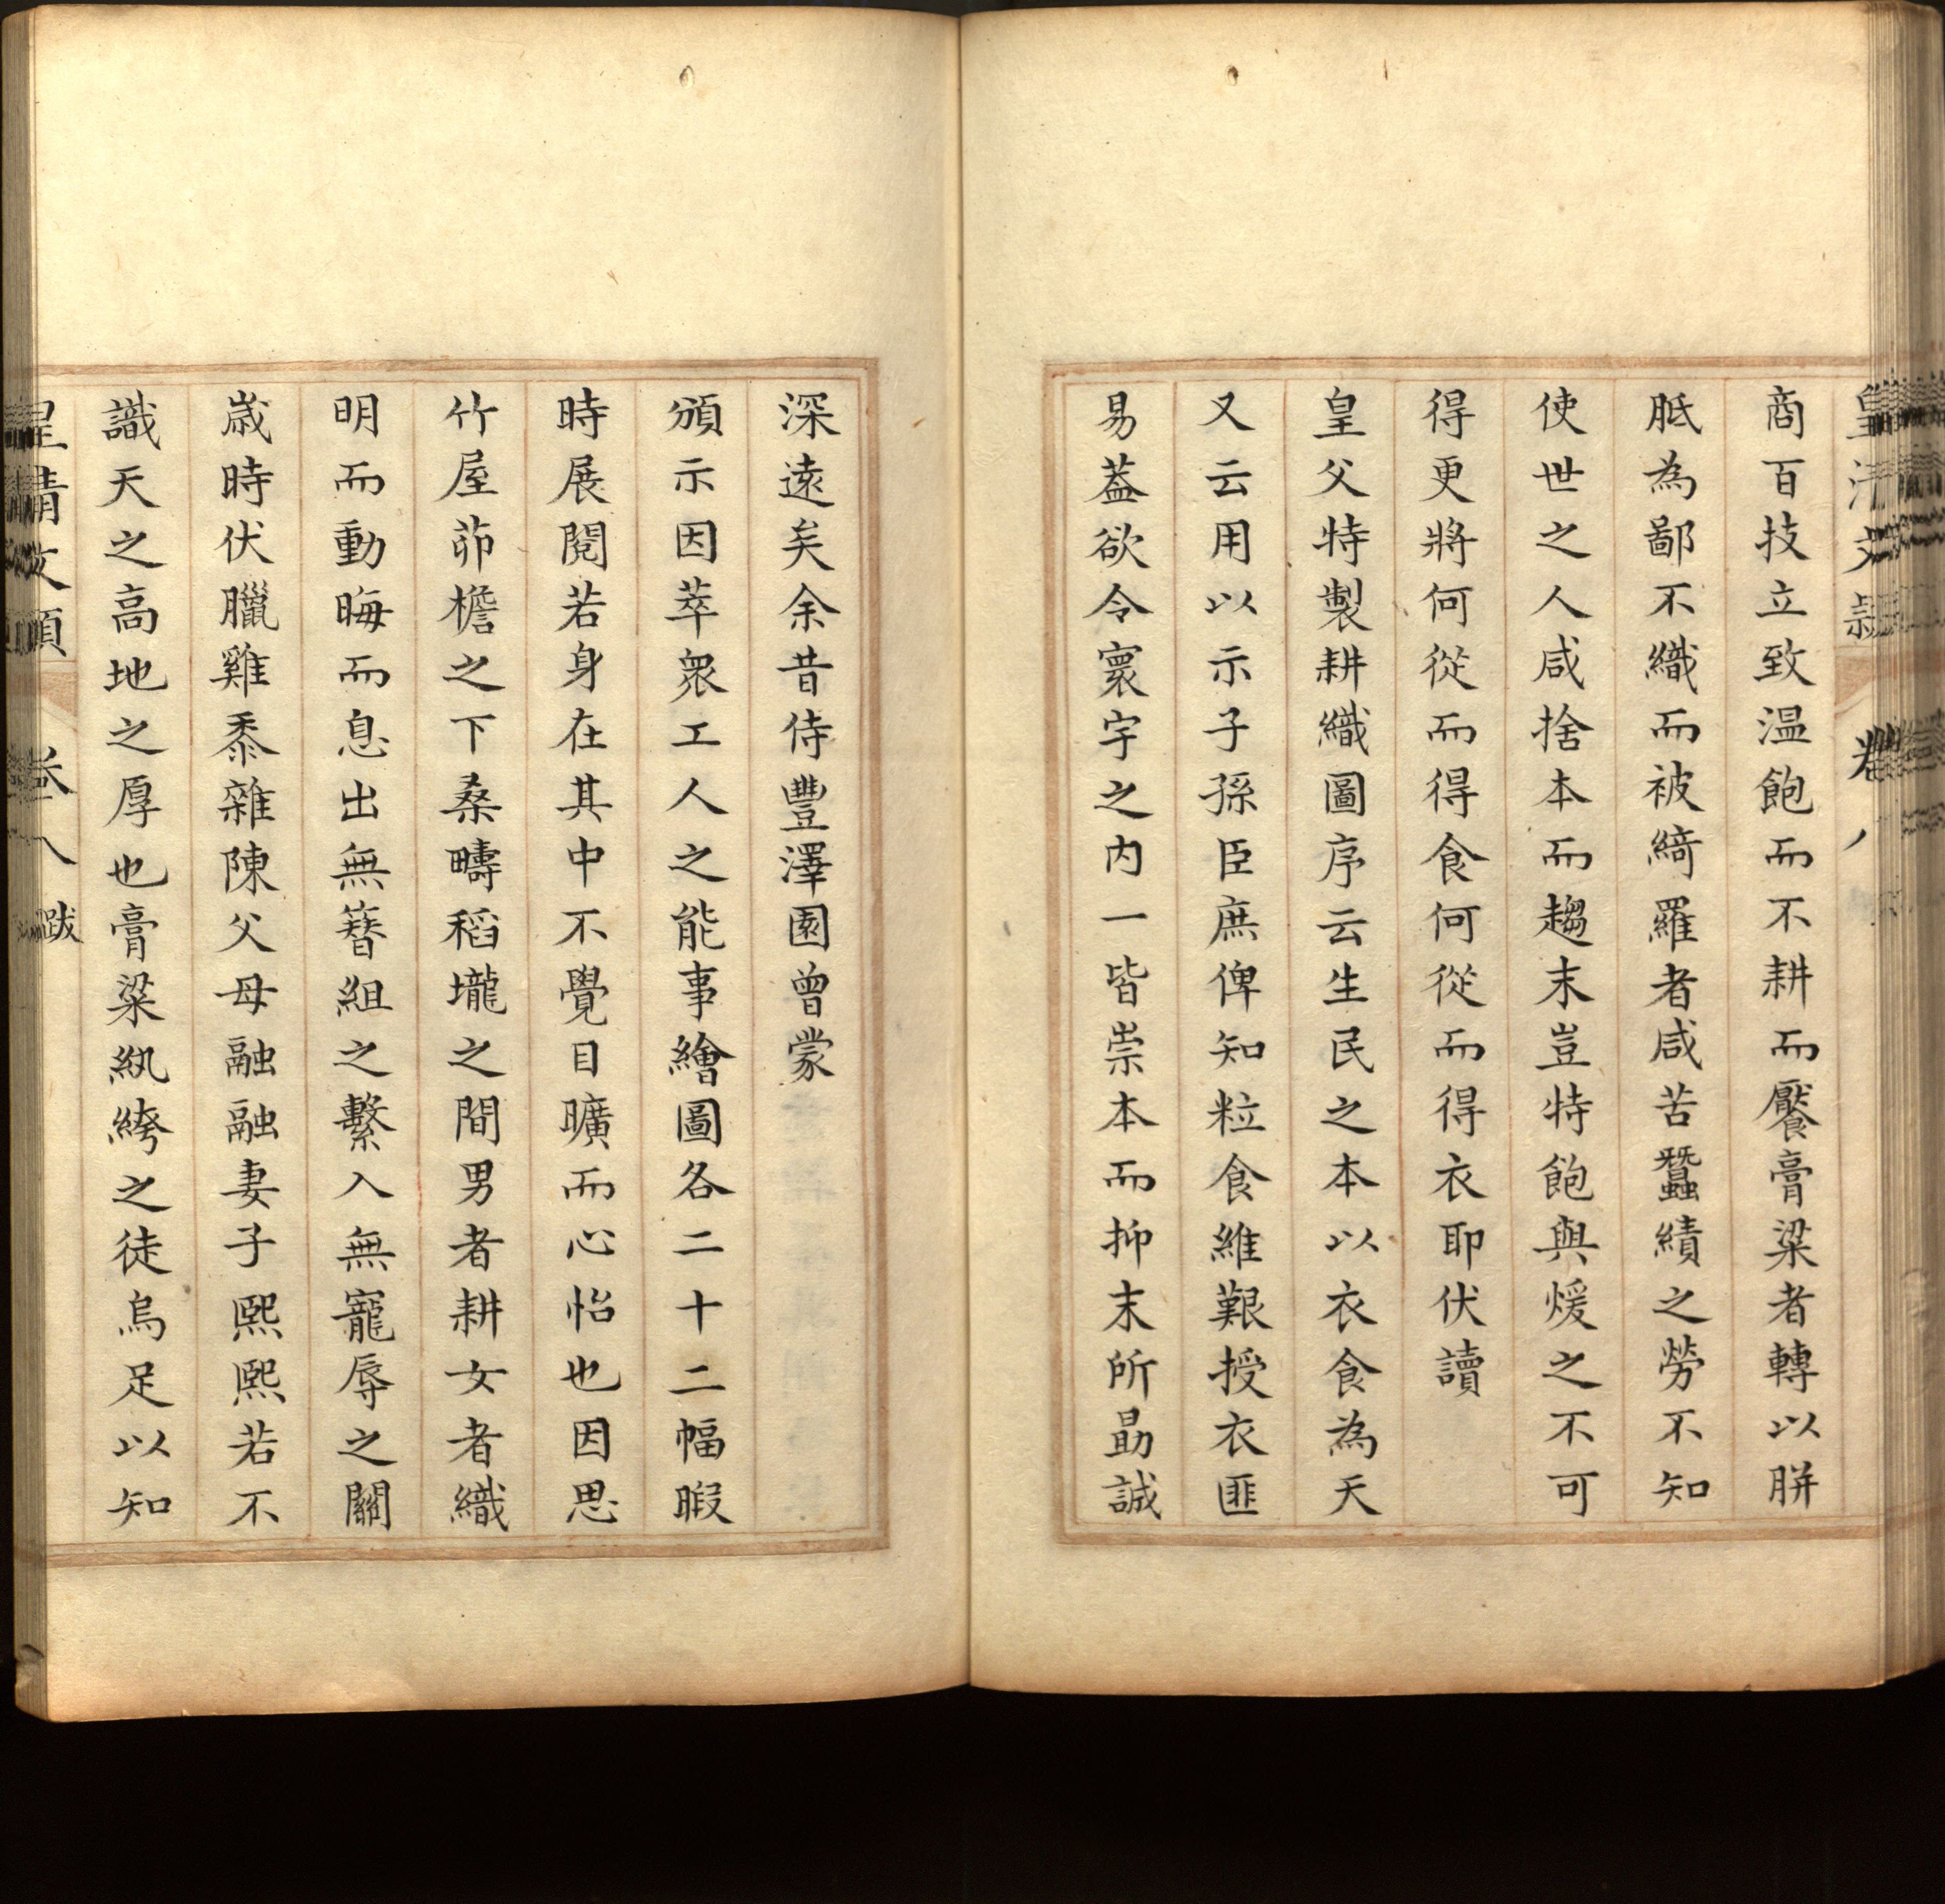 商百技立致温飽而不耕而饜膏粱者轉以胼
胝為鄙不織而被綺羅者咸苦蠶績之勞不知
使世之人咸捨本而趨末豈特飽與煖之不可
得更將何從而得食何從而得衣耶伏讀
皇父特製耕織圖序云生民之本以衣食為天
又云用以示子孫臣庶俾知粒食維艱授衣匪
易葢欲令寰宇之内一皆崇本而抑末所勗誠
深遠矣余昔侍豐澤園曾蒙
頒示因萃衆工人之能事繪圖各二十二幅暇
時展閱若身在其中不覺目曠而心怡也因思
竹屋茆檐之下桑疇稻壠之間男者耕女者織
明而動晦而息出無簪組之繫入無寵辱之關
歲時伏臘雞黍雜陳父母融融妻子熙熙若不
識天之高地之厚也膏粱紈絝之徒烏足以知
皇清文穎 卷八 跋